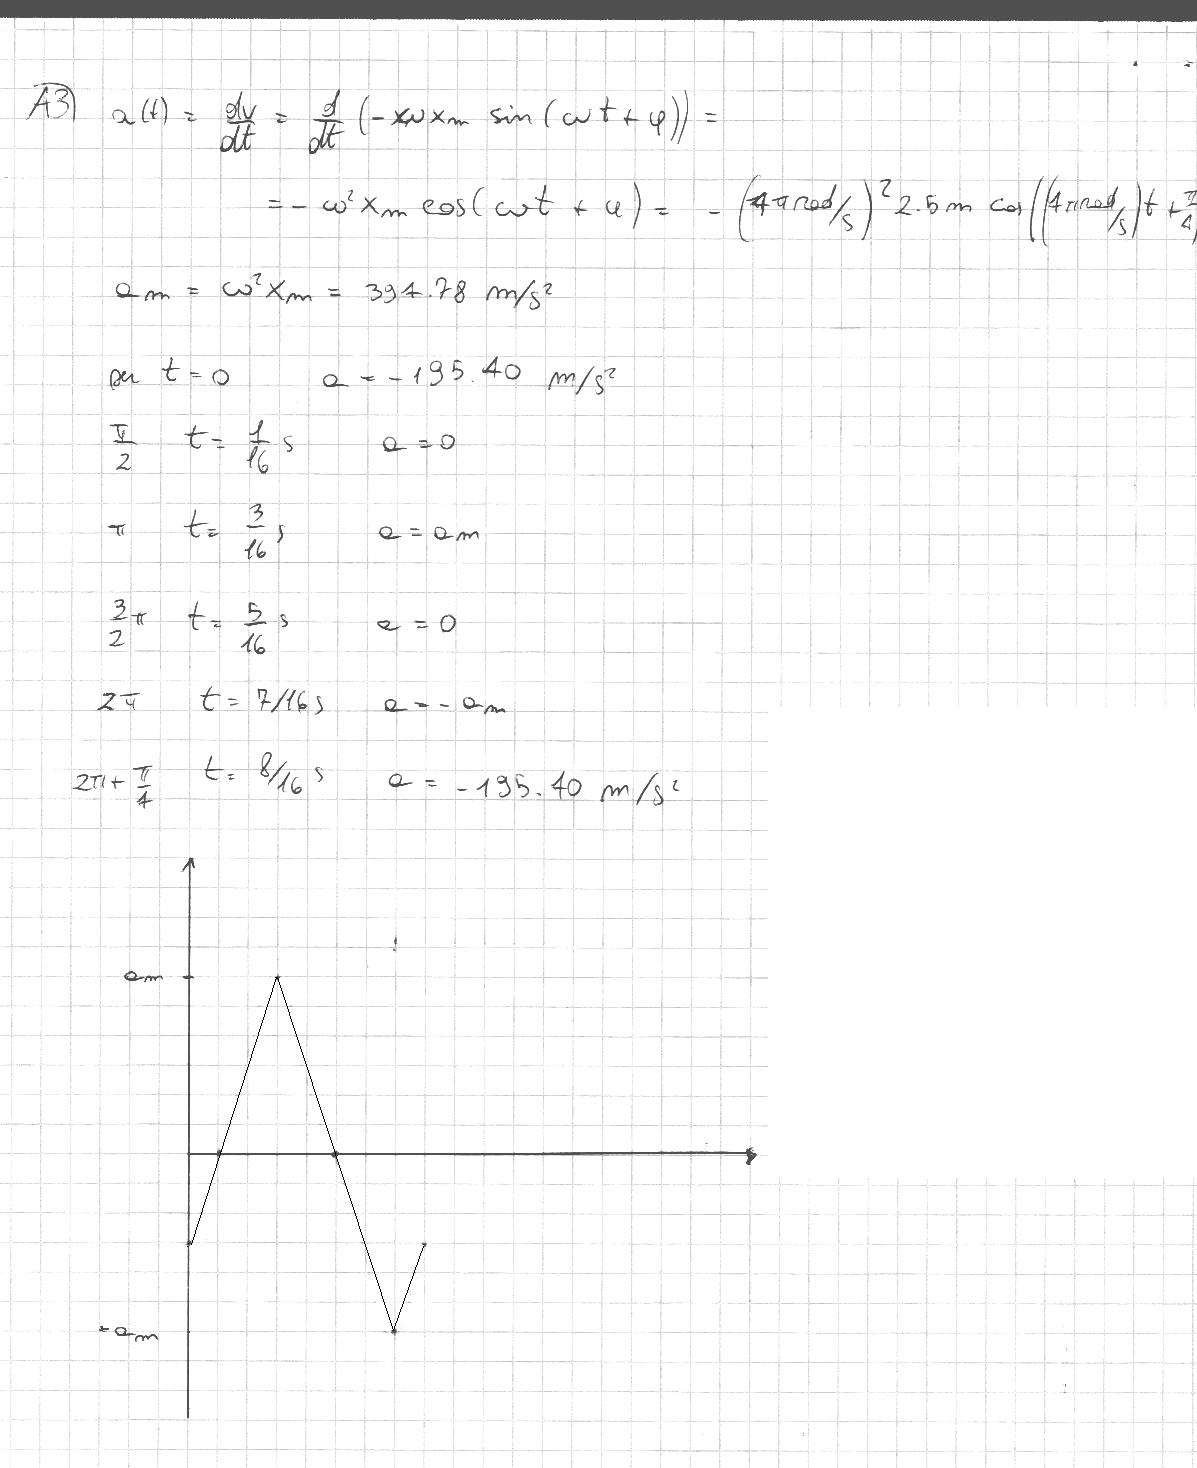 A3) a(t) = dv/dt = d/dt (-ω x_m sin(ωt + φ)) =
= - ω² x_m cos(ωt + φ) = - (4π rad/s)² 2.5 m cos((4π rad/s)t + π/4)
a_m = ω² x_m = 394.78 m/s²
per t = 0 a = -195.40 m/s²
π/2 t = 1/16 s a = 0
π t = 3/16 s a = a_m
3/2 π t = 5/16 s a = 0
2π t = 7/16 s a = - a_m
2π + π/4 t = 8/16 s a = -195.40 m/s²
a_m
- a_m